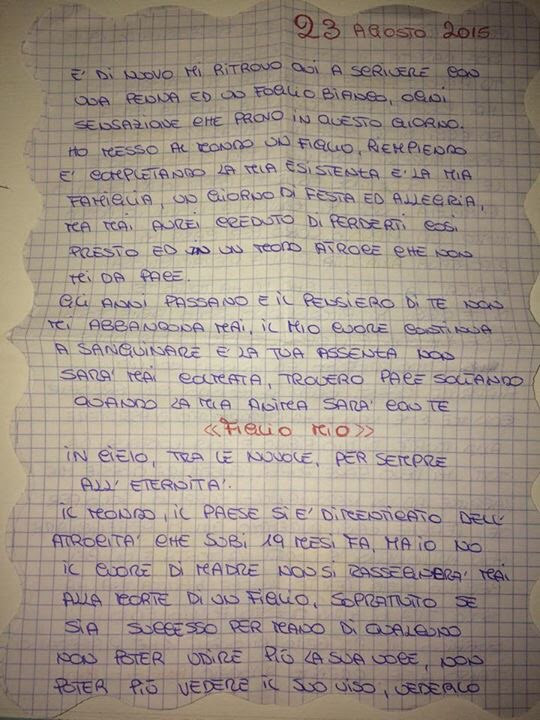 23 AGOSTO 2015
E' DI NUOVO MI RITROVO QUI A SCRIVERE CON
UNA PENNA ED UN FOGLIO BIANCO, OGNI
SENSAZIONE CHE PROVO IN QUESTO GIORNO.
HO MESSO AL MONDO UN FIGLIO, RIEMPIENDO
E' COMPLETANDO LA MIA ESISTENZA E' LA MIA
FAMIGLIA, UN GIORNO DI FESTA ED ALLEGRIA,
MA MAI AUREI CREDUTO DI PERDERTI COSÌ
PRESTO ED IN UN MODO ATROCE CHE NON
MI DA PACE.
GLI ANNI PASSANO E IL PENSIERO DI TE NON
MI ABBANDONA MAI, IL MIO CUORE CONTINUA
A SANGUINARE E LA TUA ASSENZA NON
SARA' MAI COLMATA, TROVERO PACE SOLTANDO
QUANDO LA MIA ANIMA SARA' CON TE
<<FIGLIO MIO>>
IN CIELO, TRA LE NUVOLE, PER SEMPRE
ALL' ETERNITA'.
IL MONDO, IL PAESE SI E' DIMENTICATO DELL'
ATROCITA' CHE SUBI 19 MESI FA, MA IO NO
IL CUORE DI MADRE NON SI RASSEGNERA' MAI
ALLA MORTE DI UN FIGLIO, SOPRATUTO SE
SIA SUCCESSO PER MANO DI QUALCUNO
NON POTER UDIRE PIÙ LA SUA VOCE, NON
POTER PIÙ VEDERE IL SUO VISO, VEDERLO